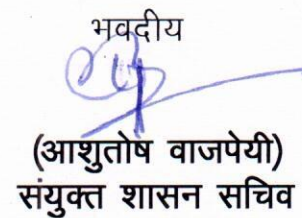 भवदीय
(आशुतोष वाजपेयी)
संयुक्त शासन सचिव